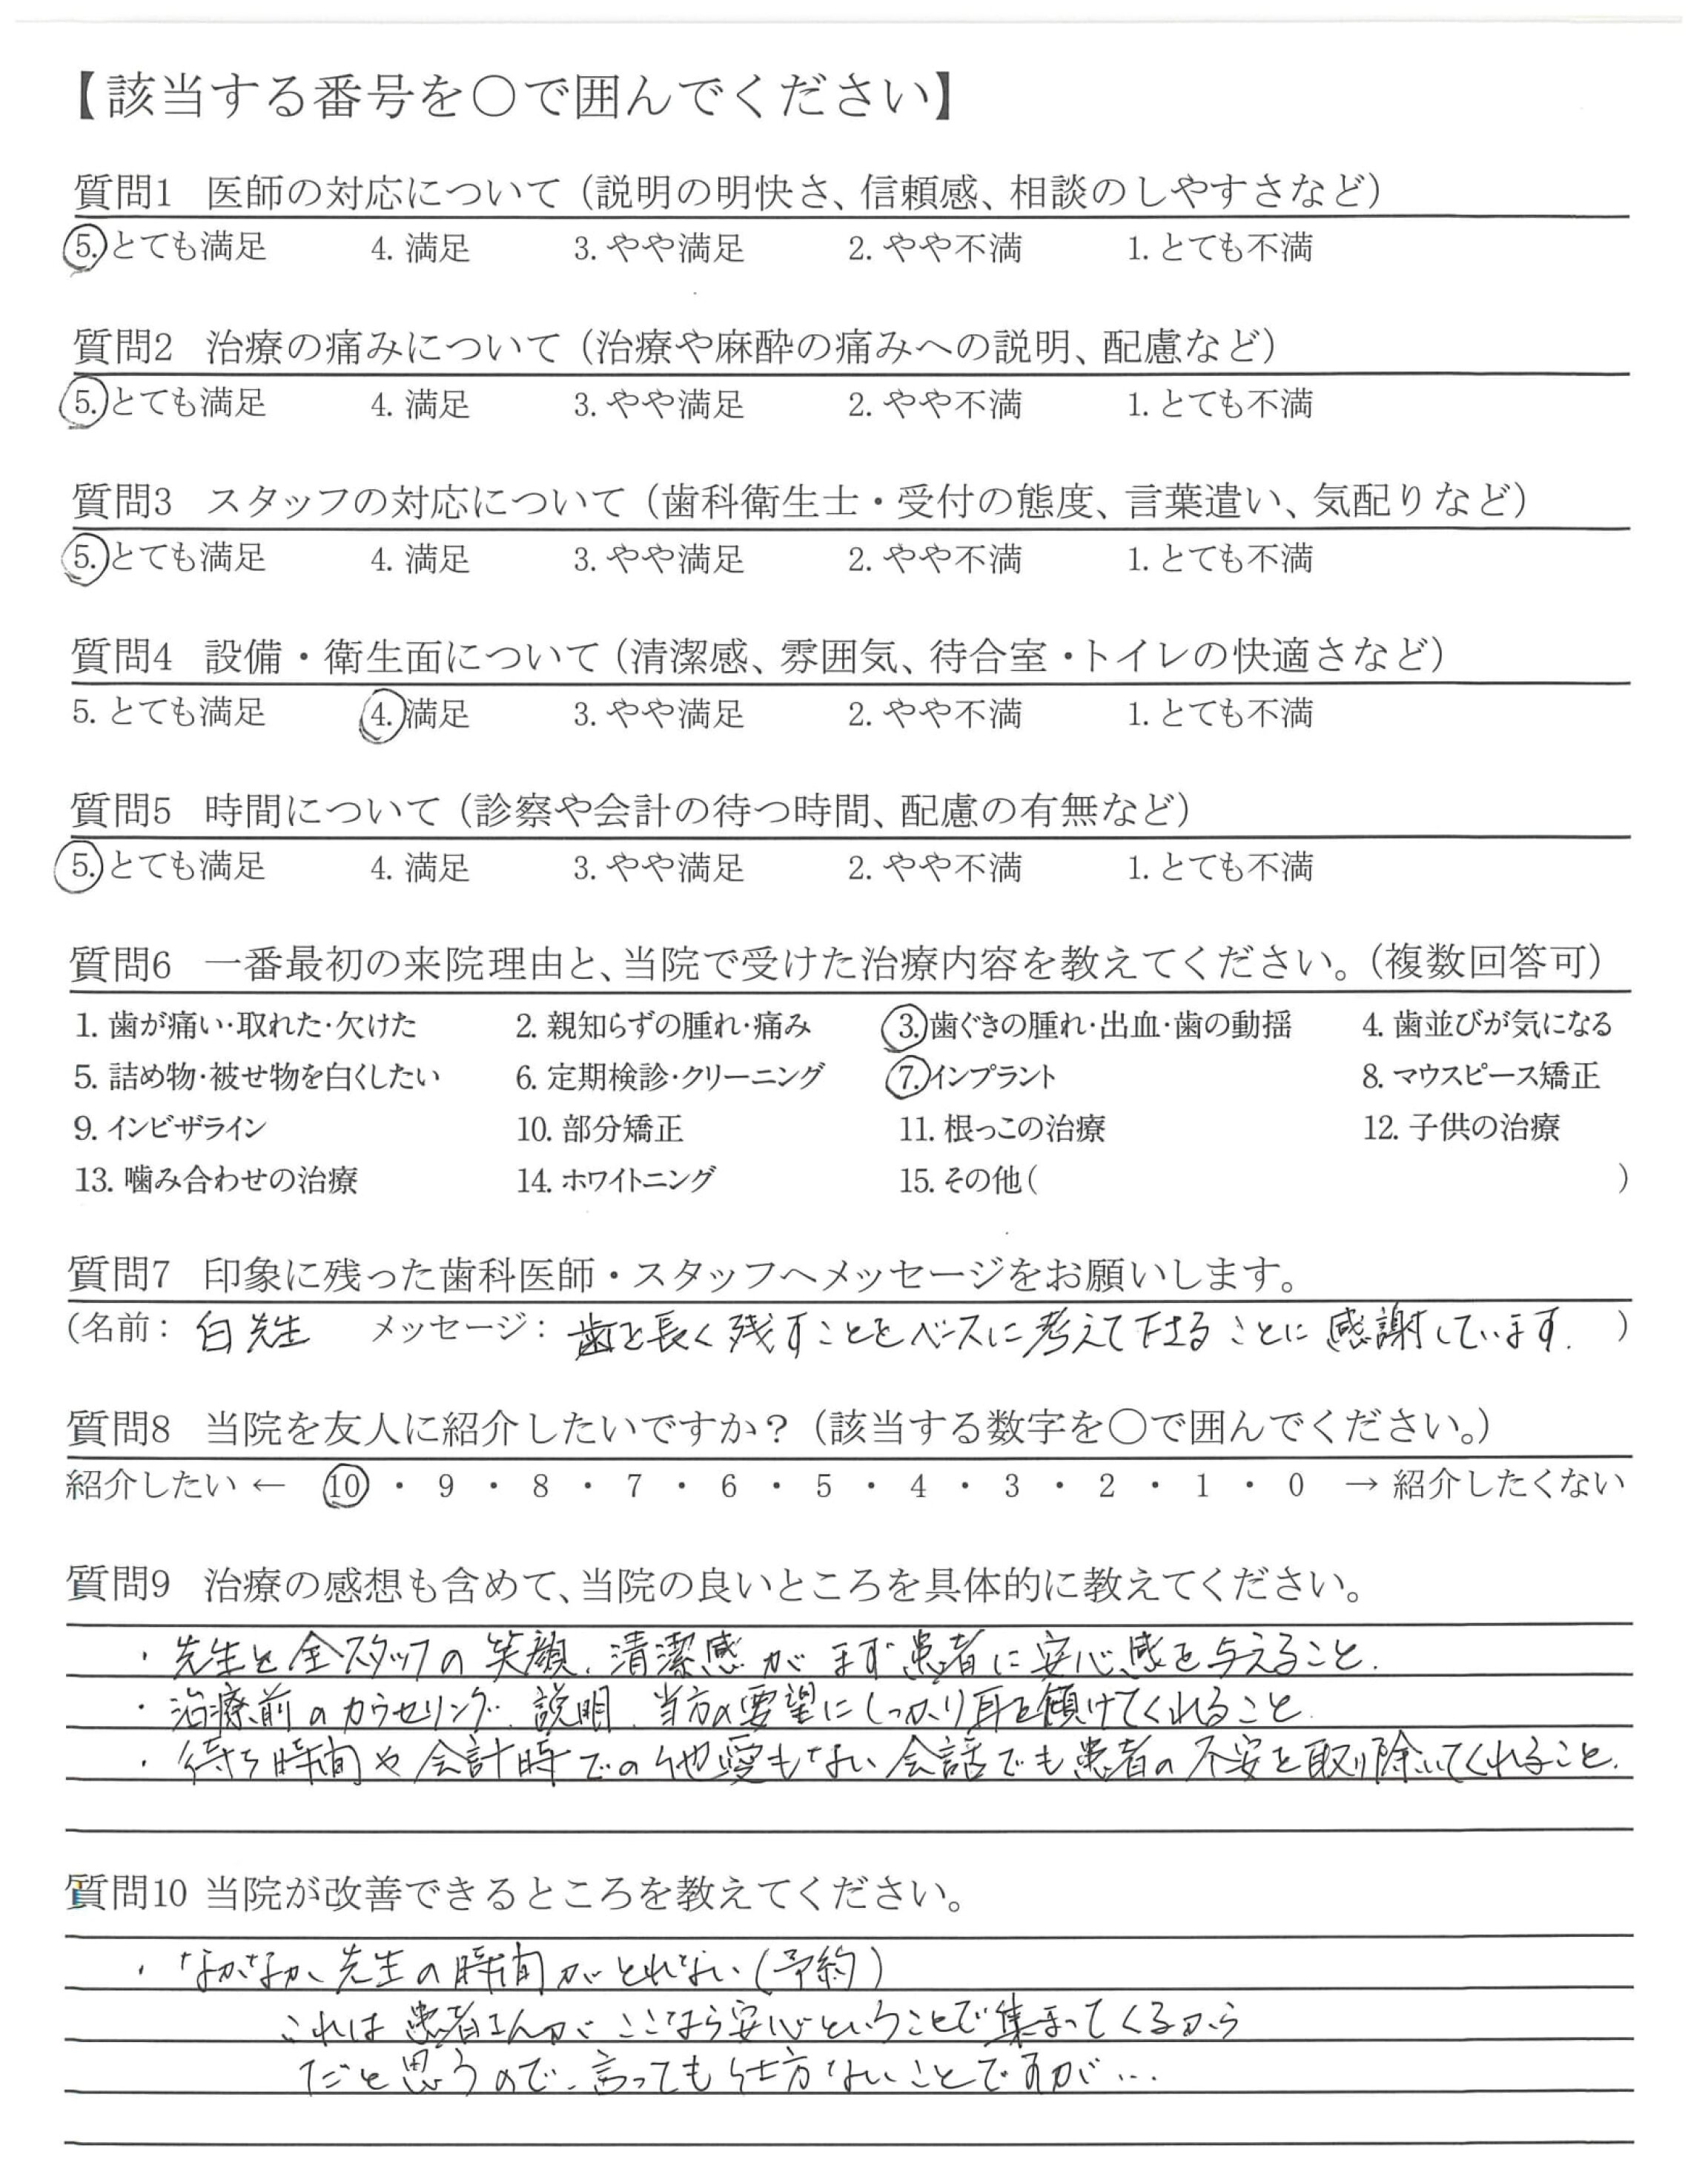 【該当する番号を〇で囲んでください】
質問1 医師の対応について（説明の明快さ、信頼感、相談のしやすさなど）
5. とても満足 4. 満足 3. やや満足 2. やや不満 1. とても不満
質問2 治療の痛みについて（治療や麻酔の痛みへの説明、配慮など）
5. とても満足 4. 満足 3. やや満足 2. やや不満 1. とても不満
質問3 スタッフの対応について（歯科衛生士・受付の態度、言葉遣い、気配りなど）
5. とても満足 4. 満足 3. やや満足 2. やや不満 1. とても不満
質問4 設備・衛生面について（清潔感、雰囲気、待合室・トイレの快適さなど）
5. とても満足 4. 満足 3. やや満足 2. やや不満 1. とても不満
質問5 時間について（診察や会計の待つ時間、配慮の有無など）
5. とても満足 4. 満足 3. やや満足 2. やや不満 1. とても不満
質問6 一番最初の来院理由と、当院で受けた治療内容を教えてください。（複数回答可）
1. 歯が痛い・取れた・欠けた 2. 親知らずの腫れ・痛み 3. 歯ぐきの腫れ・出血・歯の動揺 4. 歯並びが気になる
5. 詰め物・被せ物を白くしたい 6. 定期検診・クリーニング 7. インプラント 8. マウスピース矯正
9. インビザライン 10. 部分矯正 11. 根っこの治療 12. 子供の治療
13. 噛み合わせの治療 14. ホワイトニング 15. その他（ ）
質問7 印象に残った歯科医師・スタッフへメッセージをお願いします。
（名前： 白先生 メッセージ： 歯を長く残すことをベースに考えて下さることに感謝しています. ）
質問8 当院を友人に紹介したいですか？（該当する数字を〇で囲んでください。）
紹介したい ← 10 ・ 9 ・ 8 ・ 7 ・ 6 ・ 5 ・ 4 ・ 3 ・ 2 ・ 1 ・ 0 → 紹介したくない
質問9 治療の感想も含めて、当院の良いところを具体的に教えてください。
・先生と全スタッフの笑顔、清潔感がまず患者に安心感を与えること.
・治療前のカウセリング、説明、当方の要望にしっかり耳を傾けてくれること.
・待ち時間や会計時での他愛もない会話でも患者の不安を取り除いてくれること.
質問10 当院が改善できるところを教えてください。
・なかなか先生の時間がとれない（予約）
これは患者さんが、ここなら安心ということで集まってくるから
だと思うので、言っても仕方ないことですが…